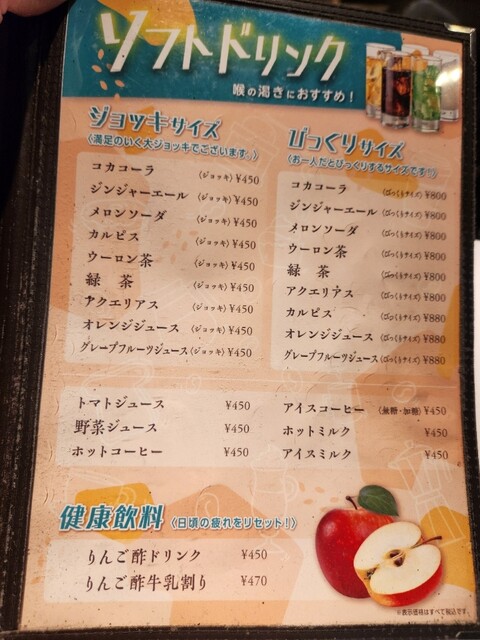 ソフトドリンク
喉の渇きにおすすめ！
ジョッキサイズ
〈満足のいく大ジョッキでございます。〉
コカコーラ 〈ジョッキ〉¥450
ジンジャーエール 〈ジョッキ〉¥450
メロンソーダ 〈ジョッキ〉¥450
カルピス 〈ジョッキ〉¥450
ウーロン茶 〈ジョッキ〉¥450
緑　茶 〈ジョッキ〉¥450
アクエリアス 〈ジョッキ〉¥450
オレンジジュース 〈ジョッキ〉¥450
グレープフルーツジュース〈ジョッキ〉¥450
びっくりサイズ
〈お一人だとびっくりするサイズです!!〉
コカコーラ 〈びっくりサイズ〉¥800
ジンジャーエール 〈びっくりサイズ〉¥800
メロンソーダ 〈びっくりサイズ〉¥800
ウーロン茶 〈びっくりサイズ〉¥800
緑　茶 〈びっくりサイズ〉¥800
アクエリアス 〈びっくりサイズ〉¥800
カルピス 〈びっくりサイズ〉¥880
オレンジジュース 〈びっくりサイズ〉¥880
グレープフルーツジュース〈びっくりサイズ〉¥880
トマトジュース ¥450
野菜ジュース ¥450
ホットコーヒー ¥450
アイスコーヒー 〈無糖・加糖〉¥450
ホットミルク ¥450
アイスミルク ¥450
健康飲料 〈日頃の疲れをリセット！〉
りんご酢ドリンク ¥450
りんご酢牛乳割り ¥470
※表示価格はすべて税込です。